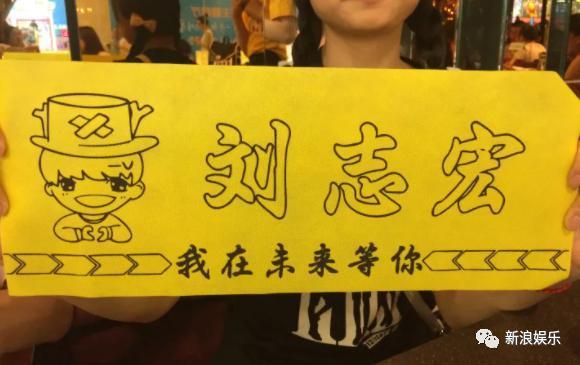 刘志宏
我在未来等你
新浪娱乐